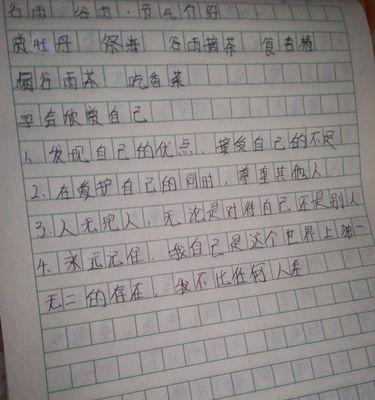 谷雨 谷雨·节气介绍
赏牡丹 祭海 谷雨摘茶 食香椿
喝谷雨茶 吃香菜
学会欣赏自己
1、发现自己的优点，接受自己的不足
2、在爱护自己的同时，尊重其他人
3、人无完人，无论是对待自己还是别人
4、永远记住，我自己是这个世界上独一
无二的存在，我不比任何人差